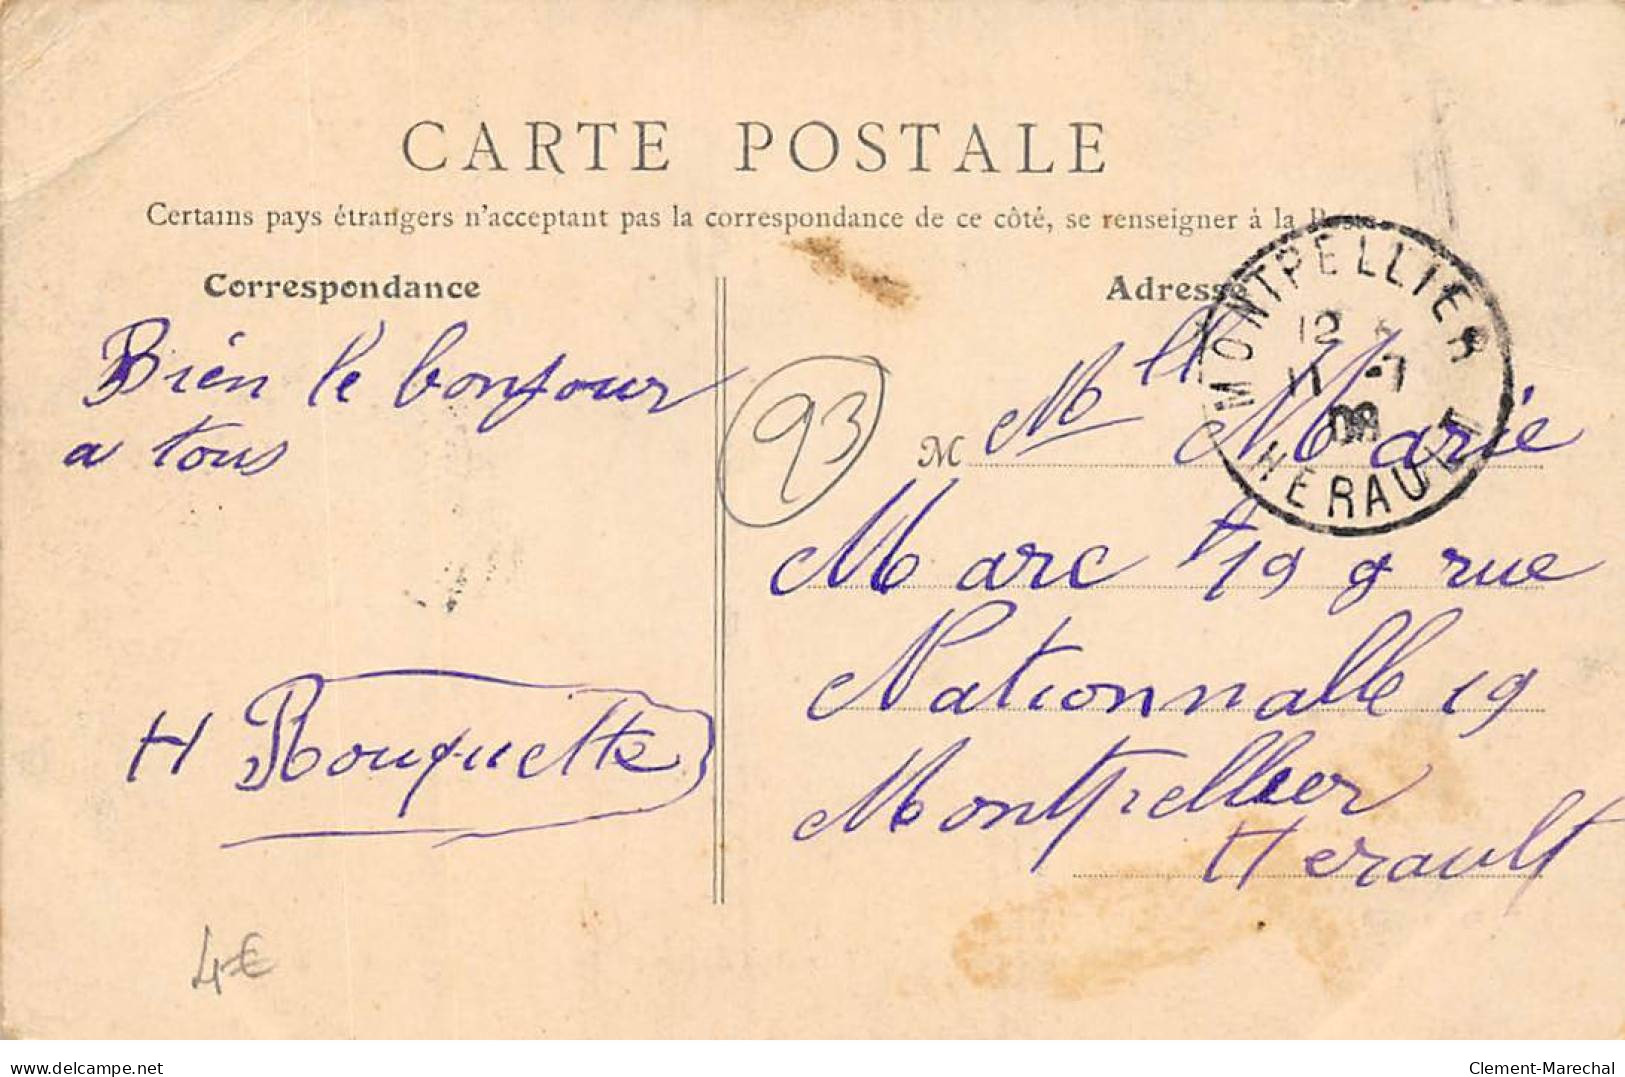 CARTE POSTALE
Certains pays étrangers n'acceptant pas la correspondance de ce côté, se renseigner à la Poste
Correspondance
Bien le bonjour
a tous
H Rouquette
4€
93
Adresse
MONTPELLIER
12
11 -7
08
HERAULT
M Mlle Marie
Marc 19 rue
Nationnalle 19
Montpellier
Herault
www.delcampe.net
Clement-Marechal